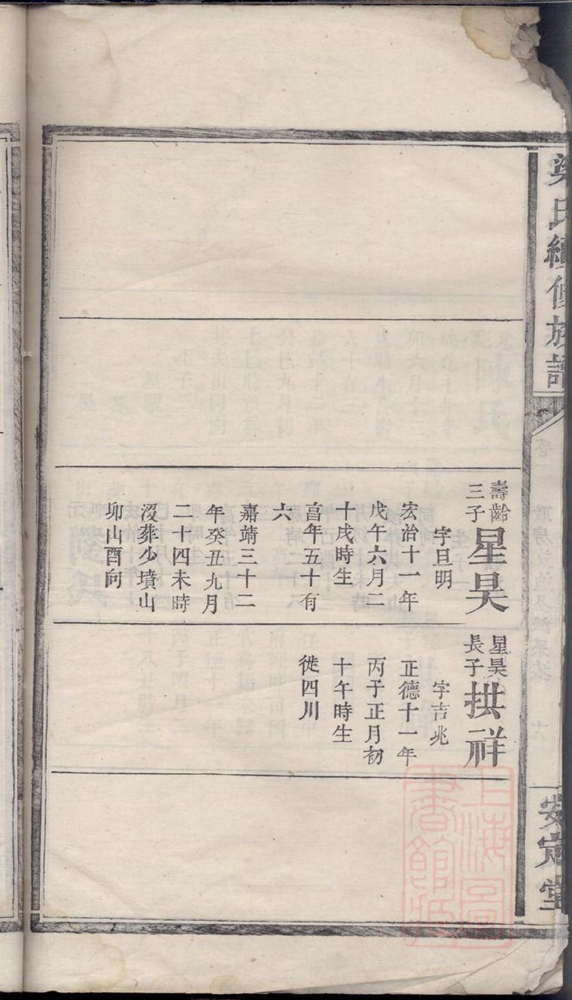 梁氏續修族譜
安定堂
壽齡
三子
星昊
字旦明
宏治十一年
戊午六月二
十戌時生
富年五十有
六
嘉靖三十二
年癸丑九月
二十四未時
沒葬少墳山
卯山酉向
星昊
長子
拱祥
字吉兆
正德十一年
丙子正月初
十午時生
徙四川
上海圖書館藏